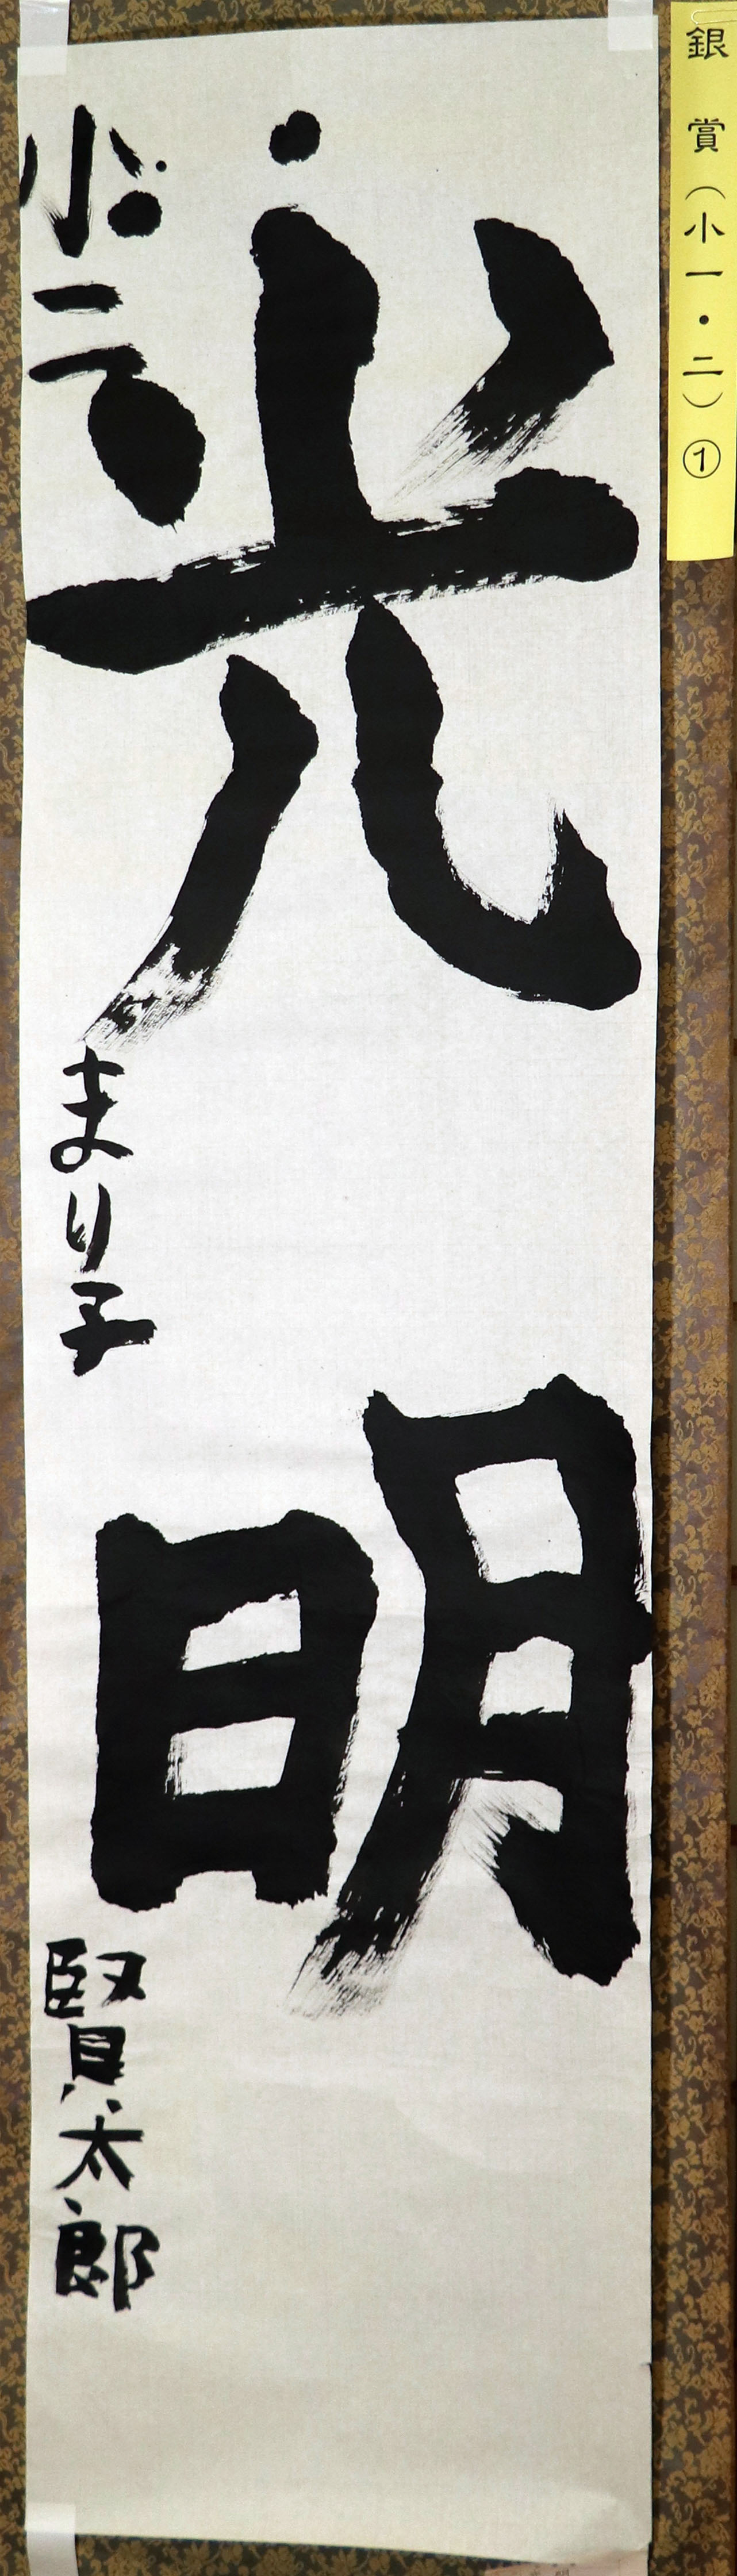 銀賞(小一・二)①
光明
小二 まり子 賢太郎